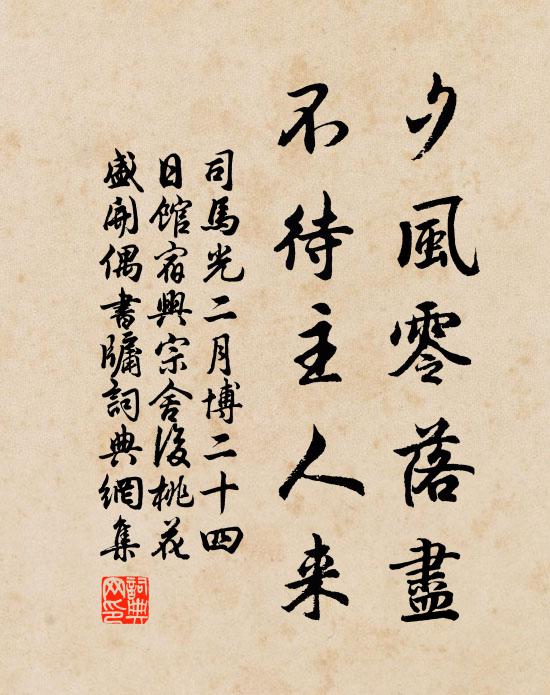 夕風零落盡
不待主人来
司馬光二月博二十四
日館宿興宗舍後桃花
盛開偶書牖詞典網集
詞典網印